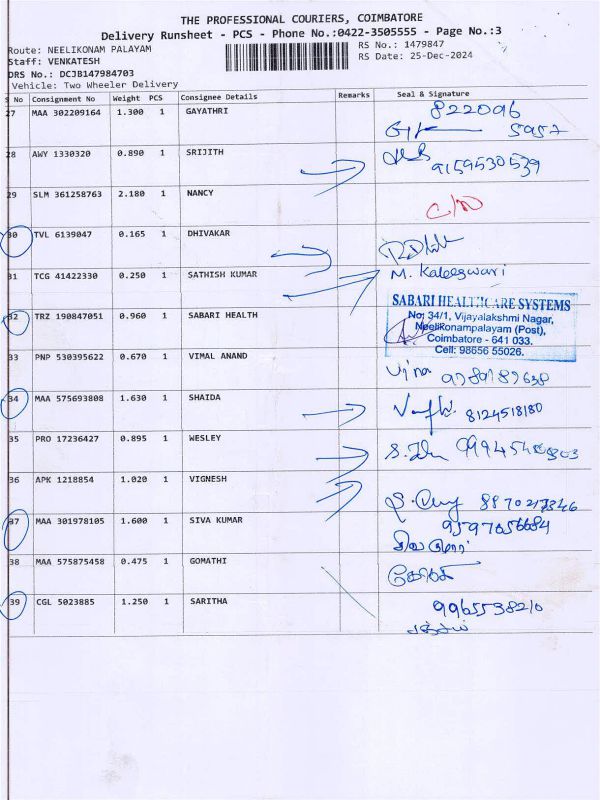 THE PROFESSIONAL COURIERS, COIMBATORE
Delivery Runsheet - PCS - Phone No.:0422-3505555 - Page No.:3
Route: NEELIKONAM PALAYAM
RS No.: 1479847
Staff: VENKATESH
RS Date: 25-Dec-2024
DRS No.: DCJB147984703
Vehicle: Two Wheeler Delivery
S No Consignment No Weight PCS Consignee Details Remarks Seal & Signature
27 MAA 302209164 1.300 1 GAYATHRI 822096
5957
28 AWY 1330320 0.890 1 SRIJITH
9159530539
29 SLM 361258763 2.180 1 NANCY
C/N
30 TVL 6139047 0.165 1 DHIVAKAR
31 TCG 41422330 0.250 1 SATHISH KUMAR M. Kaleeswari
32 TRZ 190847051 0.960 1 SABARI HEALTH
SABARI HEALTHCARE SYSTEMS
No: 34/1, Vijayalakshmi Nagar,
Neelikonampalayam (Post),
Coimbatore - 641 033.
Cell: 98656 55026.
33 PNP 530395622 0.670 1 VIMAL ANAND
34 MAA 575693808 1.630 1 SHAIDA
8124518180
35 PRO 17236427 0.895 1 WESLEY
36 APK 1218854 1.020 1 VIGNESH
8870217346
37 MAA 301978105 1.600 1 SIVA KUMAR 9597056684
38 MAA 575875458 0.475 1 GOMATHI
கோமதி
39 CGL 5023885 1.250 1 SARITHA 9965538210